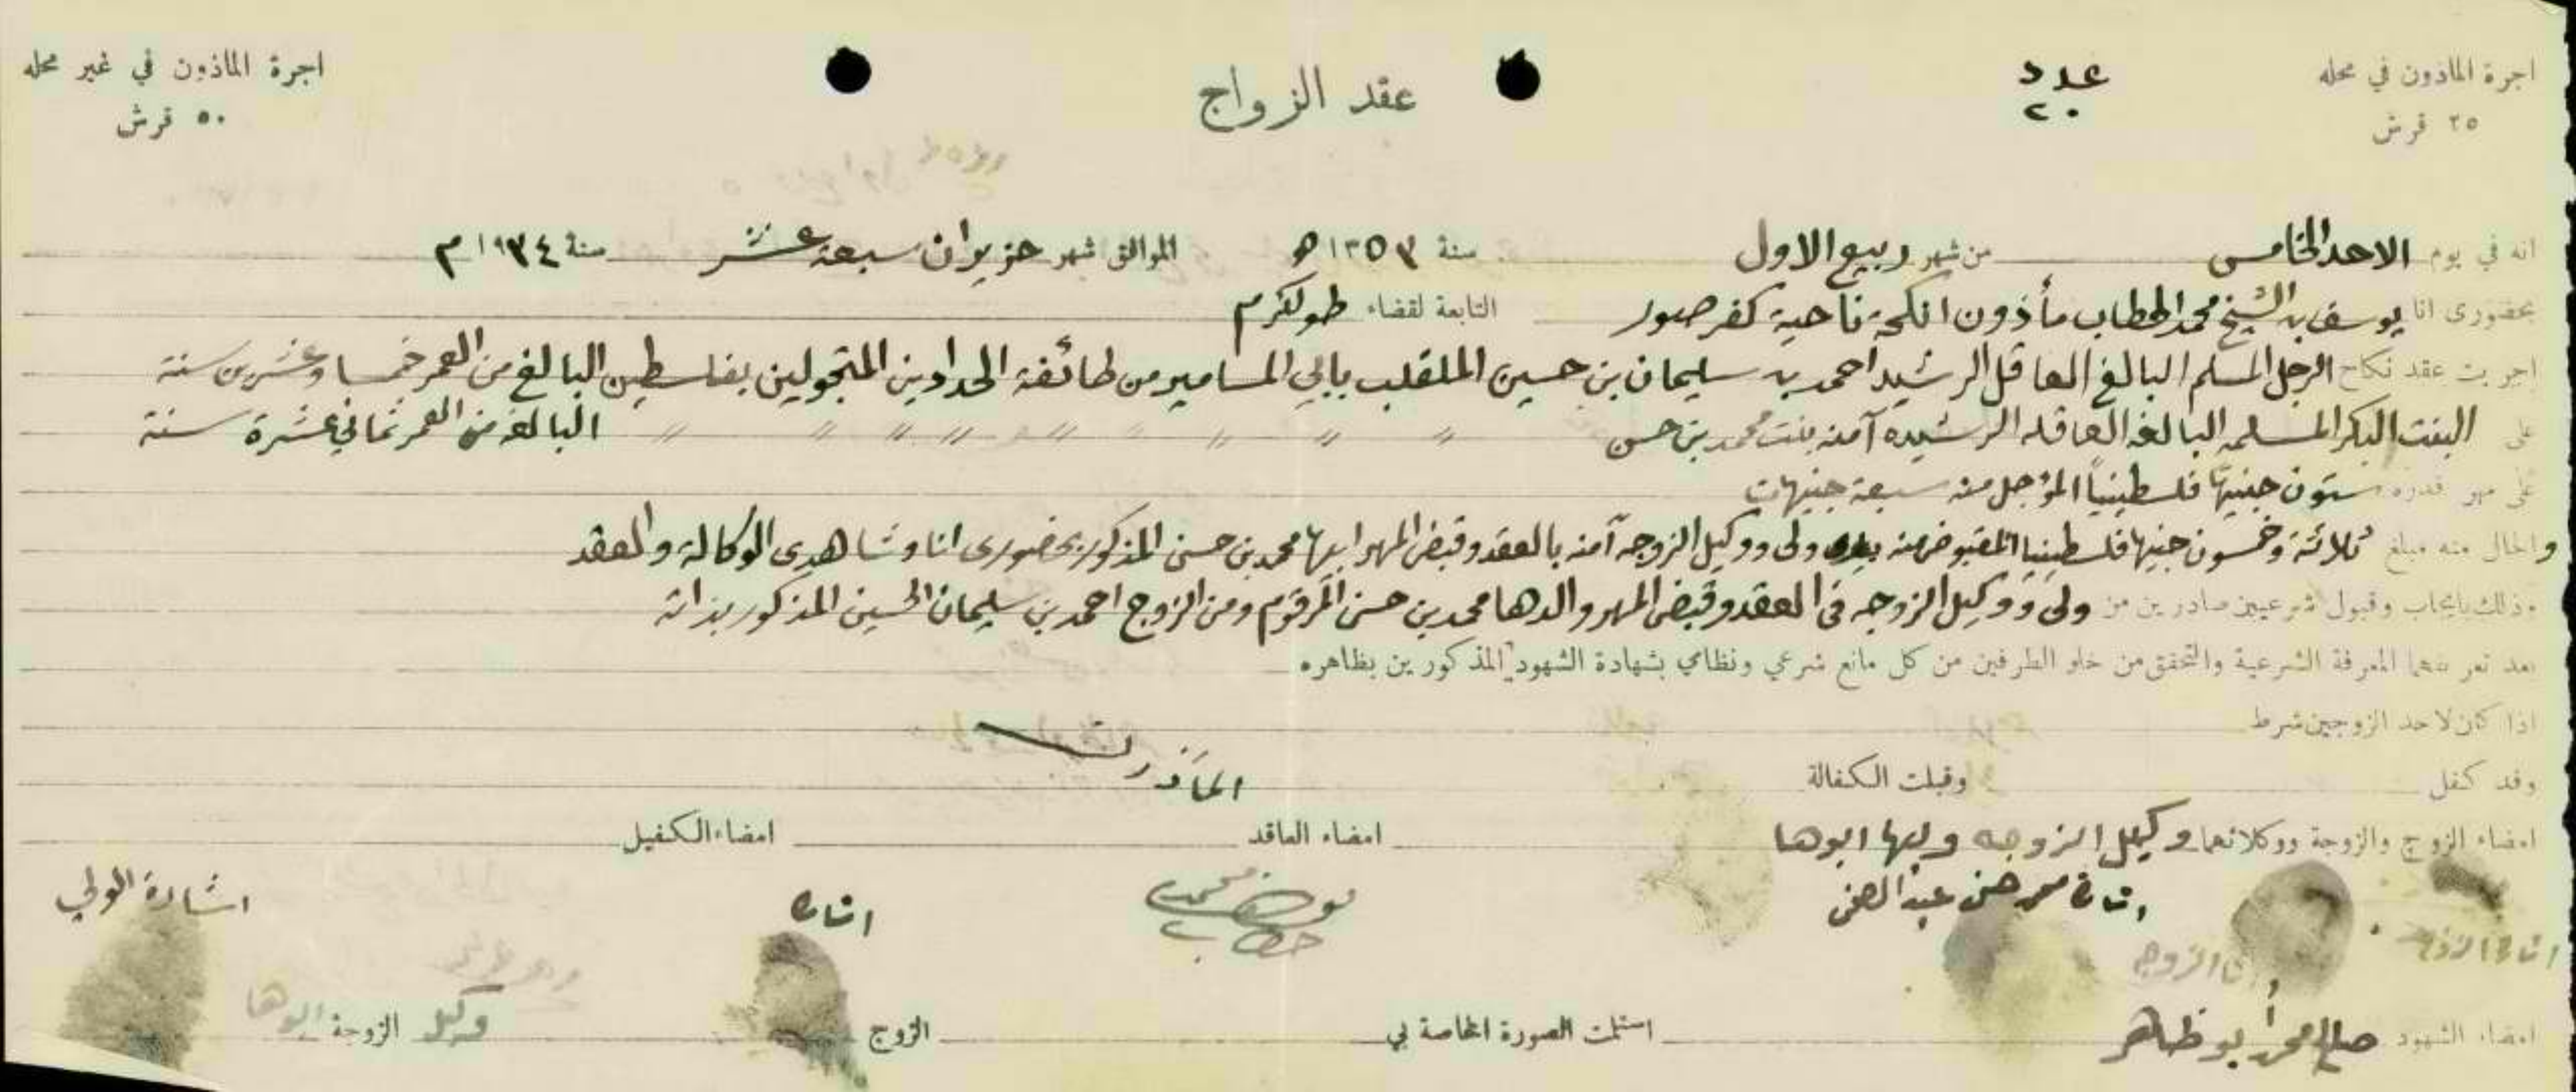 اجرة المأذون في محله
٢٥ قرش
عدد
٢٠
عقد الزواج
اجرة المأذون في غير محله
٥٠ قرش
انه في يوم الاحد الخامس من شهر ربيع الاول سنة ١٣٥٣ ه الموافق شهر حزيران سبعة عشر سنة ١٩٣٤ م
بحضوري انا يوسف بن الشيخ محمد الحطاب مأذون انكحة ناحية كفر صور التابعة لقضاء طولكرم
اجريت عقد نكاح الرجل المسلم البالغ العاقل الرشيد احمد بن سليمان بن حسين الملقلب بابي المسامير من طائفة الحدادين المتجولين بفلسطين البالغ من العمر خمسا وعشرين سنة
على البنت البكر المسلمه البالغه العاقله الرشيده آمنه بنت محمد بن حسن 〃 〃 〃 〃 〃 〃 〃 〃 〃 البالغه من العمر ثماني عشرة سنة
على مهر قدره ستون جنيهاً فلسطينياً المؤجل منه سبعة جنيهات
والحال منه مبلغ ثلاثة وخمسون جنيها فلسطينيا المقبوض منه بيد ولي ووكيل الزوجه آمنه بالعقد وقبض المهر ابيها محمد بن حسن المذكور بحضوري انا وشاهدي الوكالة والعقد
وذلك بايجاب وقبول شرعيين صادرين من ولي ووكيل الزوجه في العقد وقبض المهر والدها محمد بن حسن المرقوم ومن الزوج احمد بن سليمان الحسين المذكور بذاته
بعد تعريفهما المعرفة الشرعية والتحقق من خلو الطرفين من كل مانع شرعي ونظامي بشهادة الشهود المذكورين بظاهره
اذا كان لاحد الزوجين شرط
وقد كفل وقبلت الكفالة
المأذون
امضاء الزوج والزوجة ووكلائهما وكيل الزوجه وليها ابوها امضاء العاقد امضاء الكفيل
اشارة محمد حسن عبد الغني
يوسف محمد
حطاب
اشارة
اشارة الولي
اشارة الزوج
امضاء الشهود صالح محمد أبو ظاهر استلمت الصورة الخاصة بي الزوج وكيل الزوجة ابوها